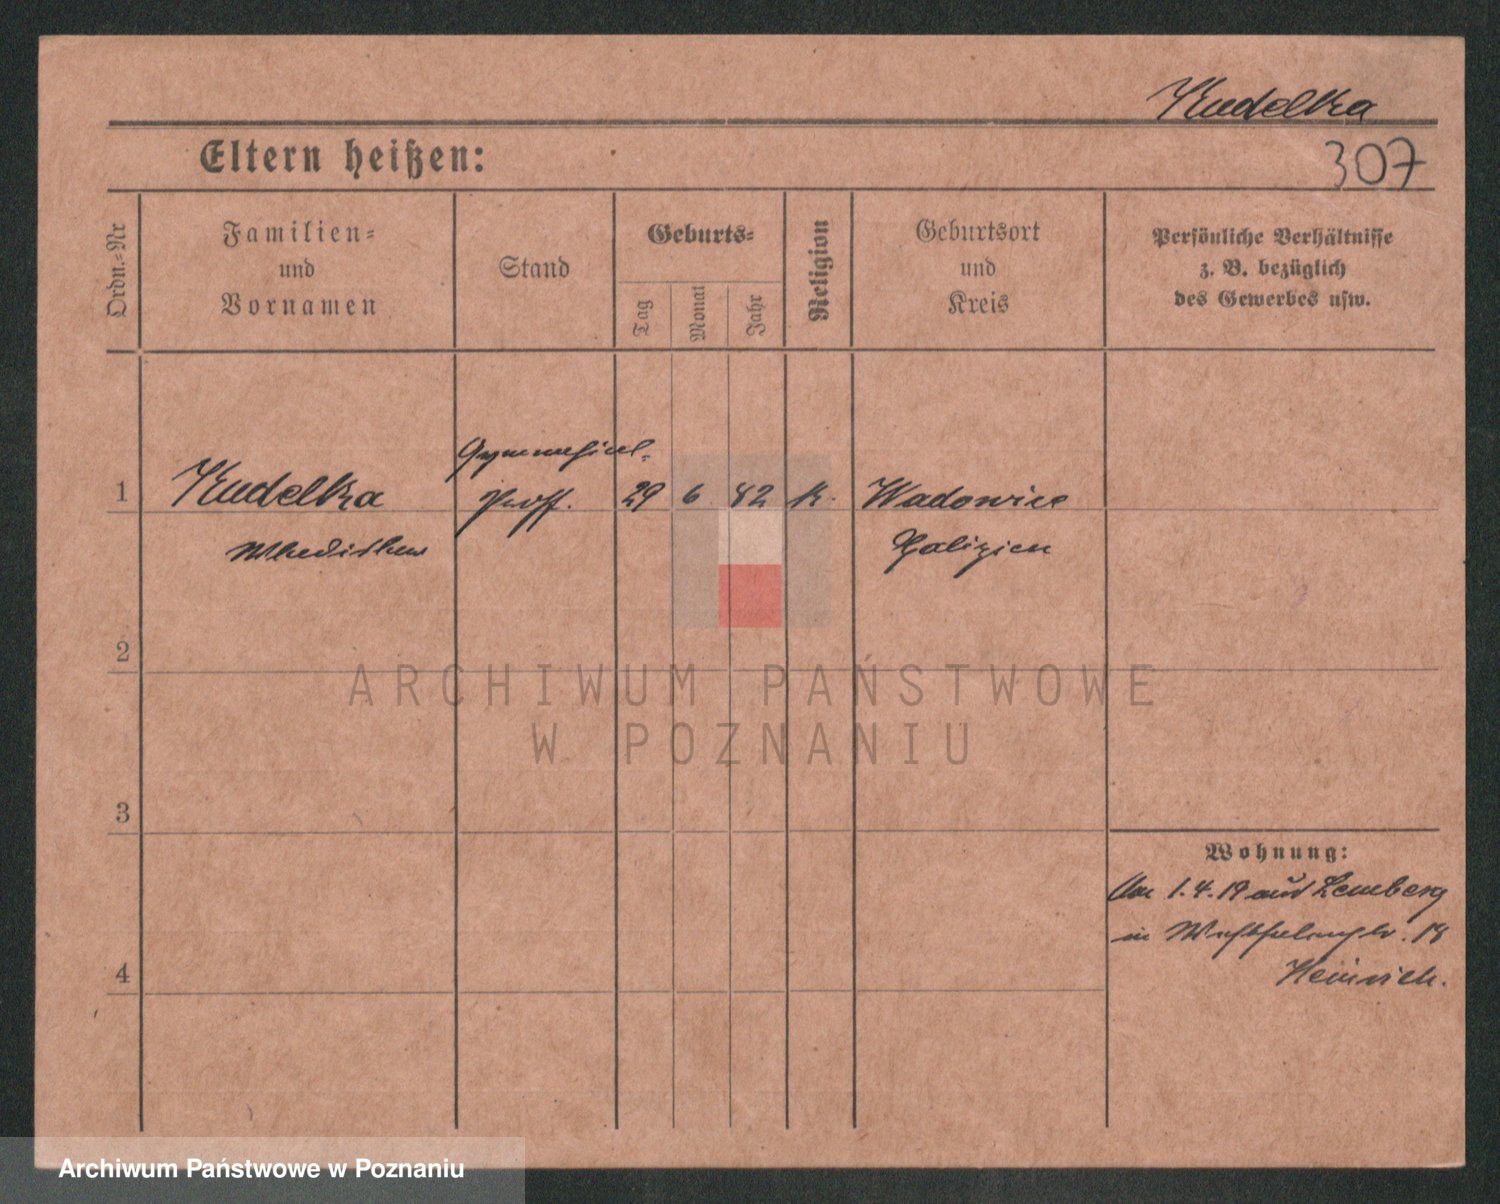 Kudelka
Eltern heißen:
307
Ordn.=Nr
Familien=
und
Vornamen
Stand
Geburts=
Tag
Monat
Jahr
Religion
Geburtsort
und
Kreis
Persönliche Verhältnisse
z. B. bezüglich
des Gewerbes usw.
Gymnasial-
1
Kudelka
Proff.
29
6
82
K.
Wadowice
Wladislaus
Galizien
2
ARCHIWUM PAŃSTWOWE
W POZNANIU
3
Wohnung:
Am 1.4.19 aus Lemberg
in 18
4
Heinrich.
Archiwum Państwowe w Poznaniu